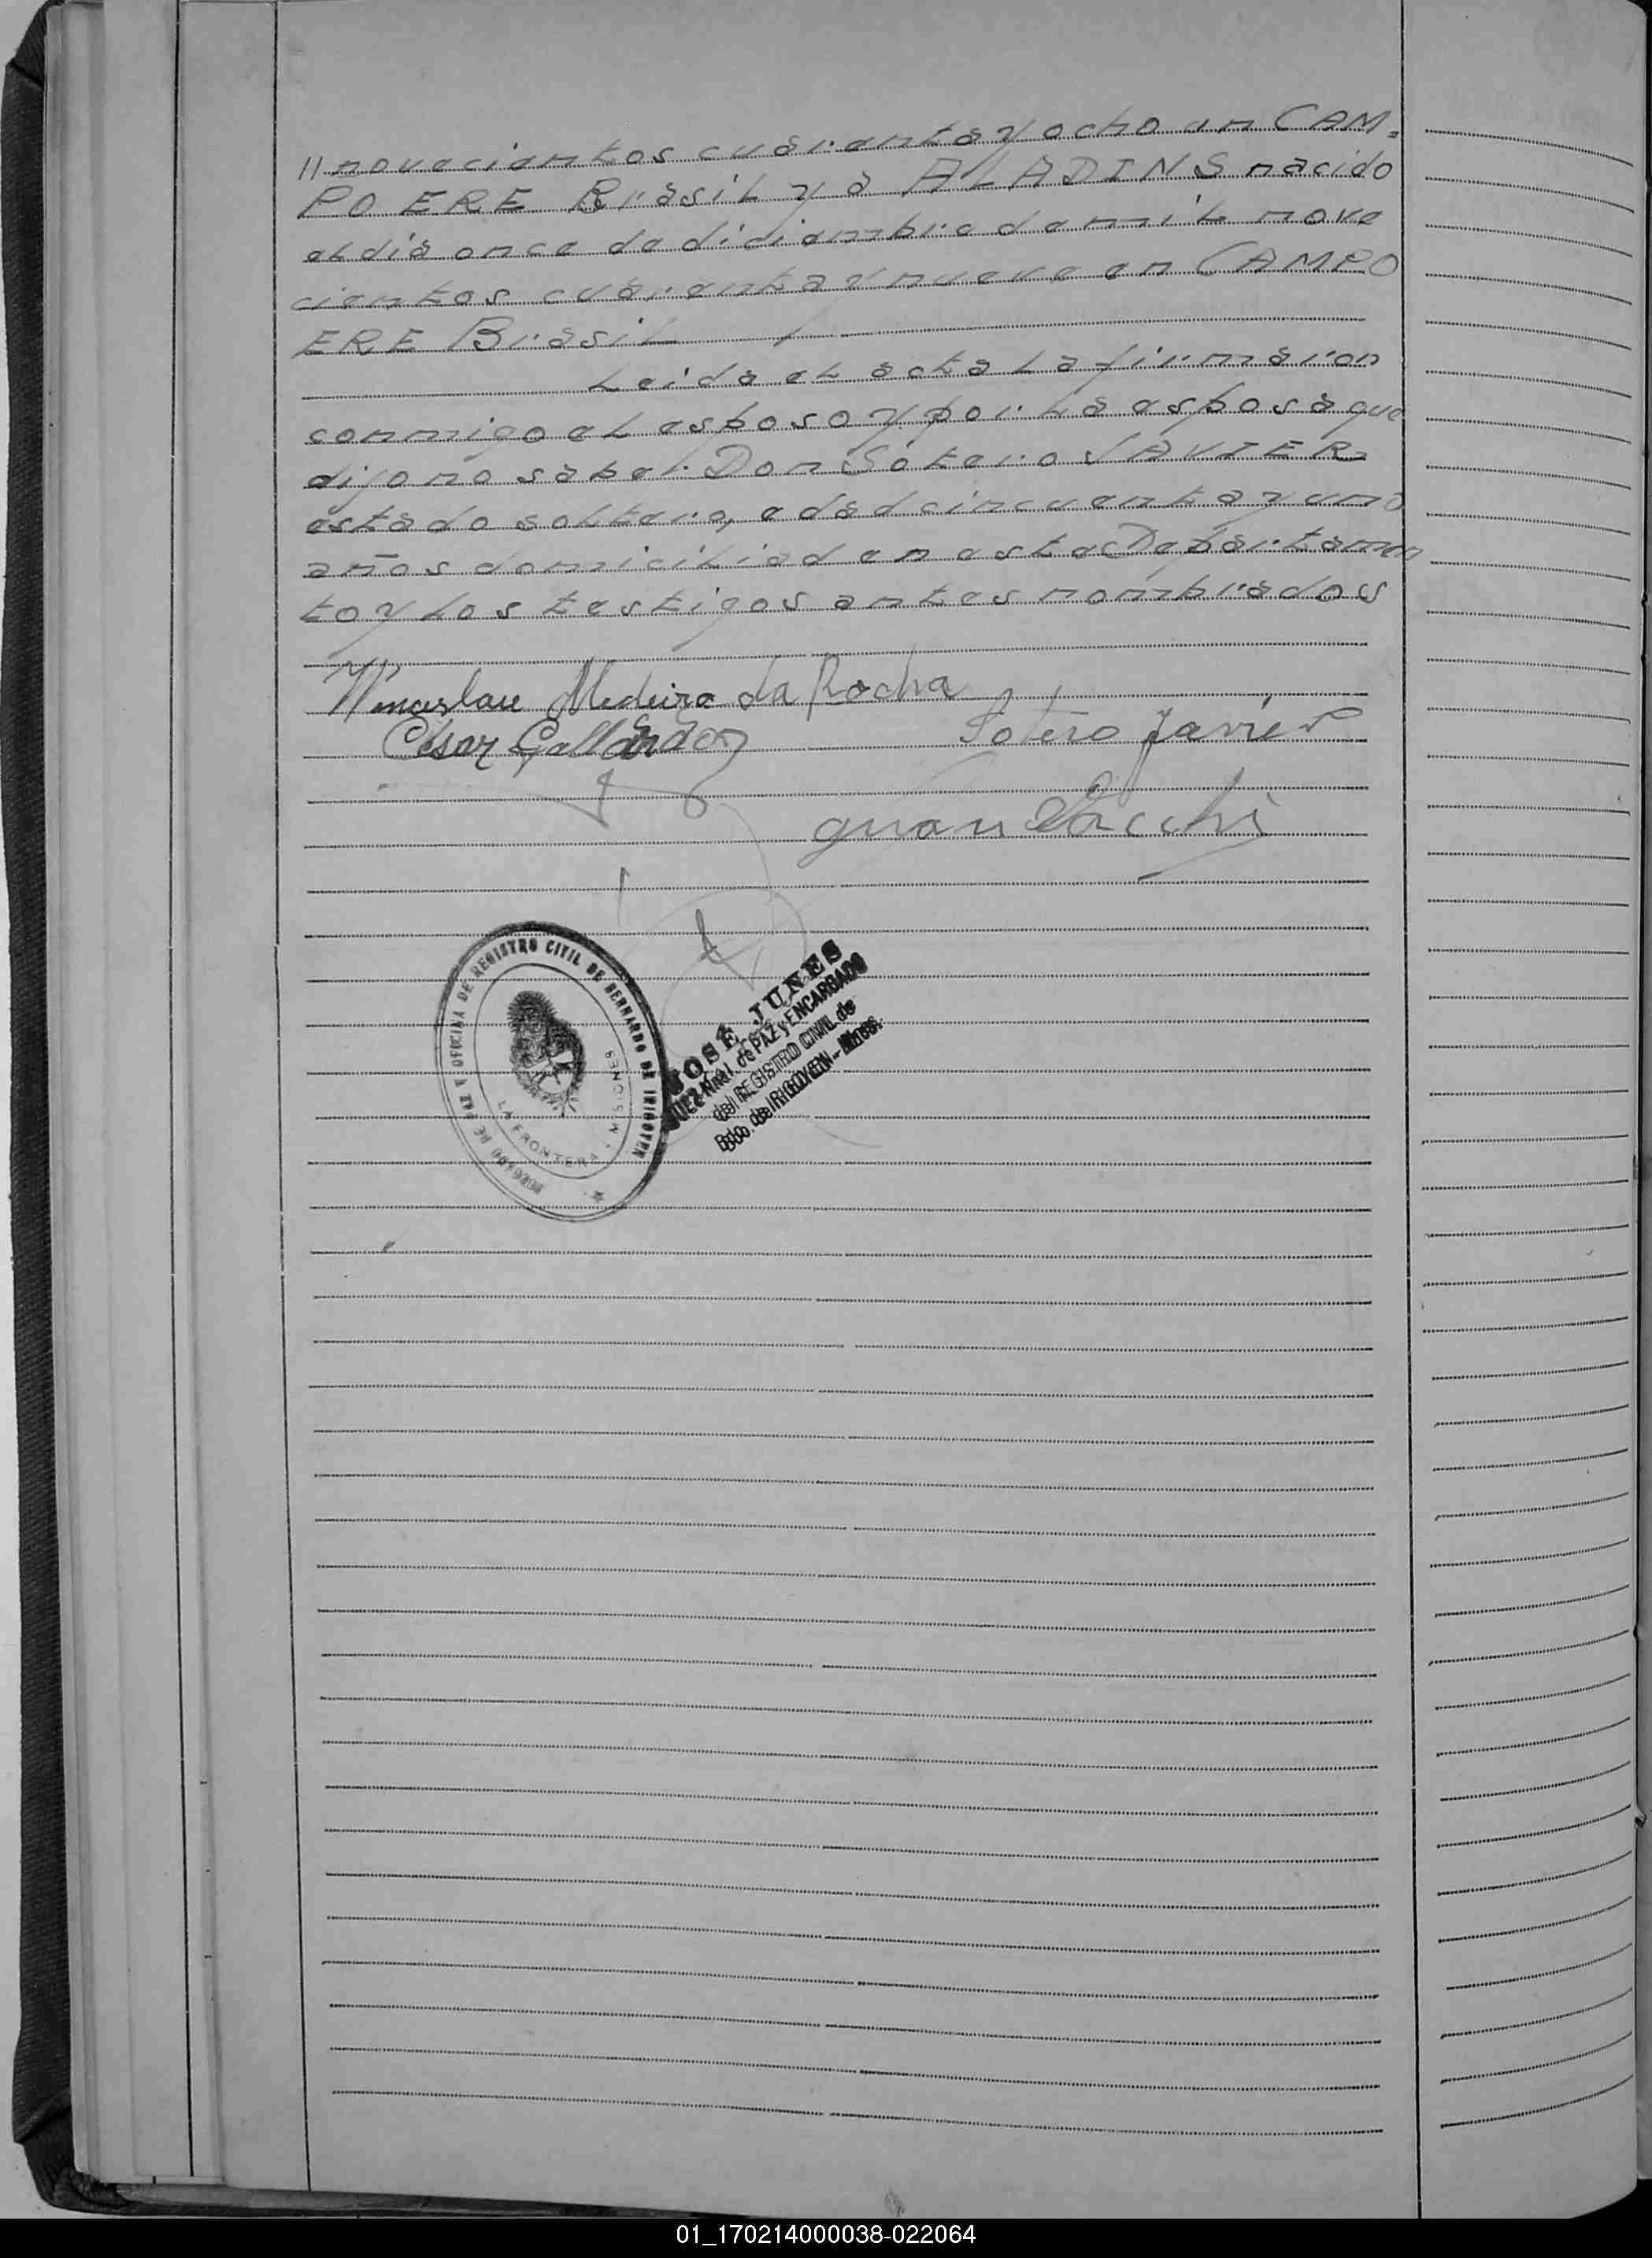 // novecientos cuarenta y ocho en CAM-
PO ERE Brasil y a ALADINS nacido
el dia once de diciembre de mil nove
cientos cuarenta y nueve en CAMPO
ERE Brasil
Leida el acta la firmaron
conmigo el esposo y por la esposa que
dijo no saber Don Sotero JAVIER
estado soltero, edad cincuenta y uno
años domiciliad en este Departamen
to y los testigos antes nombrados
Medeiro da Rocha
César Gallardo
Sotero Javier
JUZGADO DE PAZ Y OFICINA DE REGISTRO CIVIL DE BERNARDO DE IRIGOYEN
LA FRONTERA - MISIONES
JOSÉ JUNES
JUEZ de PAZ y ENCARGADO
del REGISTRO CIVIL de
Bdo. de IRIGOYEN - Mnes.
01_170214000038-022064